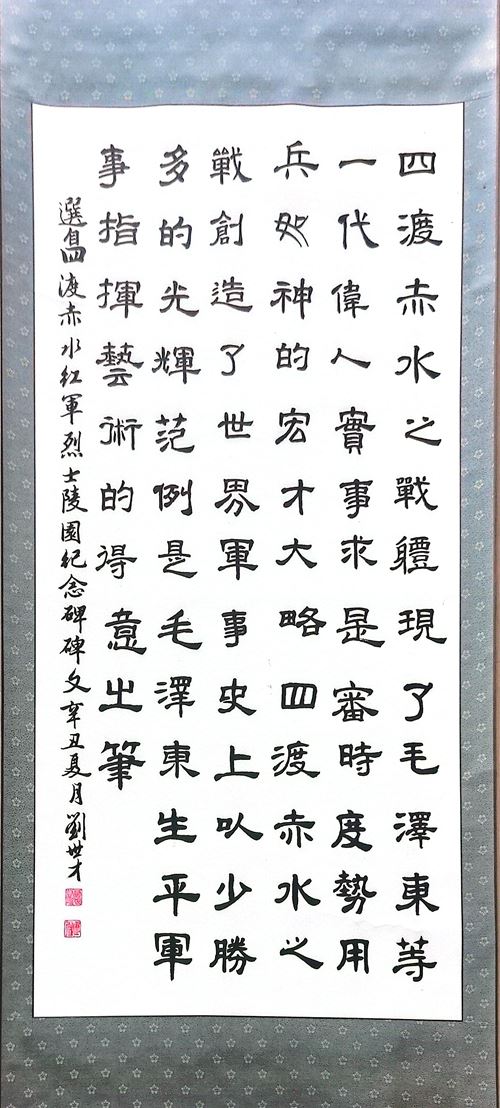 四渡赤水之戰體現了毛澤東等
一代偉人實事求是審時度勢用
兵如神的宏才大略四渡赤水之
戰創造了世界軍事史上以少勝
多的光輝范例是毛澤東生平軍
事指揮藝術的得意之筆
選自四渡赤水红軍烈士陵園纪念碑碑文辛丑夏月劉世才